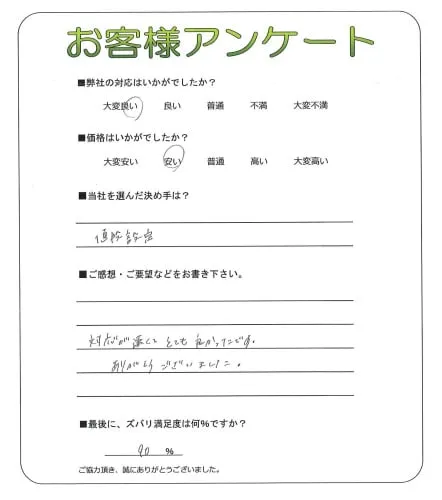 お客様アンケート
■弊社の対応はいかがでしたか？
大変良い 良い 普通 不満 大変不満
■価格はいかがでしたか？
大変安い 安い 普通 高い 大変高い
■当社を選んだ決め手は？
価格設定
■ご感想・ご要望などをお書き下さい。
対応が速くて とても 良かったです。
ありがとうございました。
■最後に、ズバリ満足度は何％ですか？
90 ％
ご協力頂き、誠にありがとうございました。